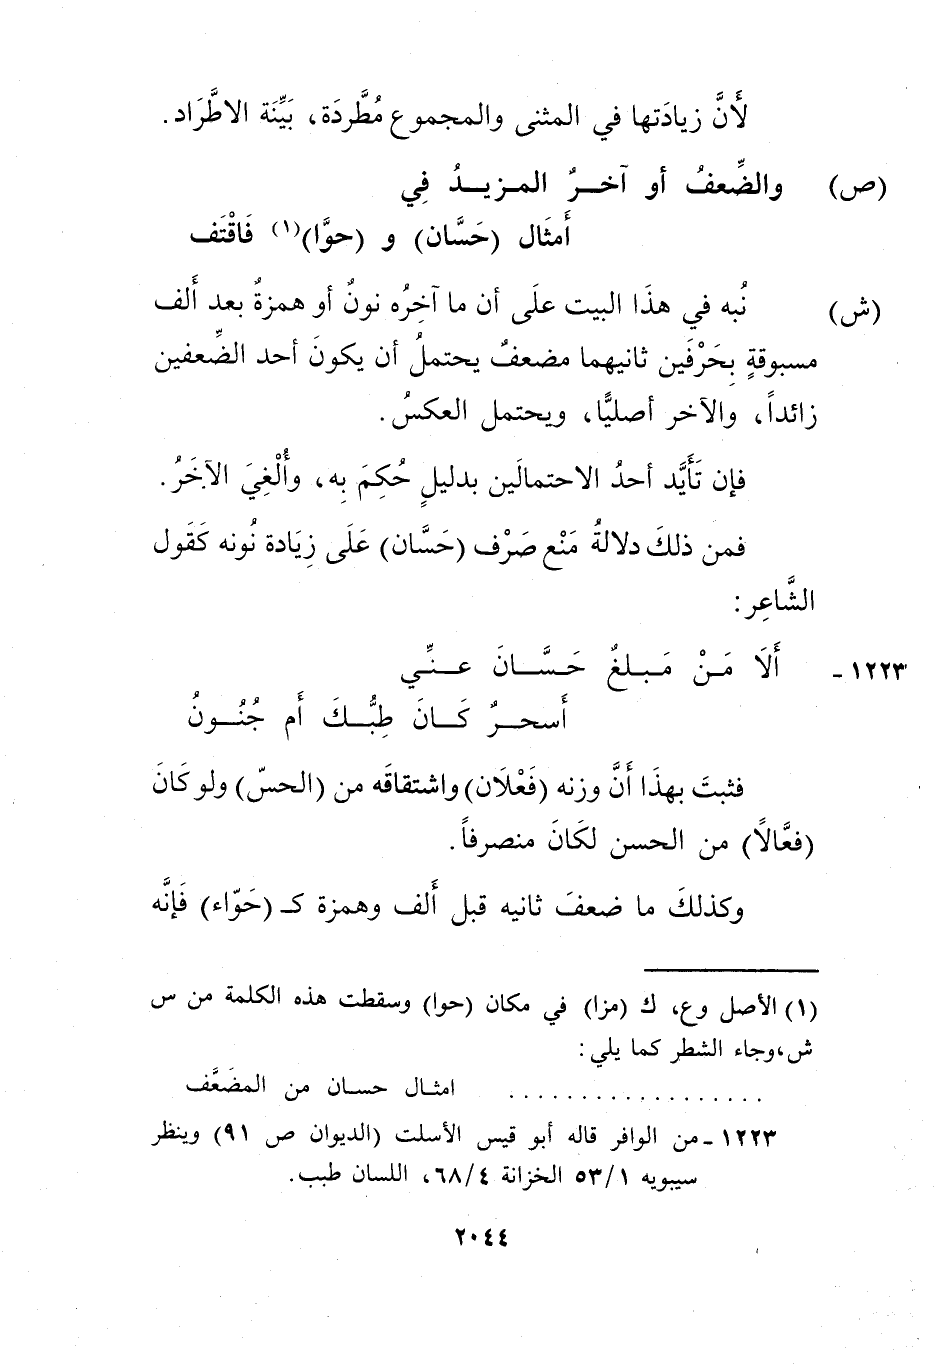 لأَنَّ زيادَتها في المثنى والمجموع مُطَّردَة، بَيِّنَة الاطَّرَاد.
(ص) والضِّعفُ أو آخـرُ المـزيـدُ فِي
أَمثَال (حَسَّان) و (حوَّا)(١) فَاقْتَف
(ش) نُبه في هذَا البيت علَى أن ما آخِرُه نونٌ أو همزةٌ بعد أَلف
مسبوقةٍ بِحَرْفَين ثانيهما مضعفٌ يحتملُ أن يكونَ أحد الضِّعفين
زائداً، والآخر أصليًّا، ويحتمل العكسُ.
فإن تَأَيَّد أحدُ الاحتمالَين بدليلٍ حُكِمَ بِه، وأُلْغِيَ الآخَرُ.
فمن ذلكَ دلالةُ مَنْع صَرْف (حَسَّان) عَلَى زِيَادة نُونه كَقول
الشَّاعِر:
١٢٢٣ - أَلَا مَـنْ مَـبـلغٌ حَـسَّــانَ عـنِّـي
أَسحـرٌ كَـانَ طِبُّـكَ أَم جُنُـونُ
فثبتَ بهذَا أَنَّ وزنه (فَعْلَان) واشتقاقَه من (الحسّ) ولو كَانَ
(فعَّالًا) من الحسن لكَانَ منصرفاً.
وكذلكَ ما ضعفَ ثانيه قبل أَلف وهمزة كـ (حَوّاء) فَإنَّه
(١) الأصل وع، ك (مزا) في مكان (حوا) وسقطت هذه الكلمة من س
ش، وجاء الشطر كما يلي:
. . . . . . . . . . . . . . . . . . امثـال حسـان من المضَعَّف
١٢٢٣ - من الوافر قاله أبو قيس الأسلت (الديوان ص ٩١) وينظر
سيبويه ٥٣/١ الخزانة ٦٨/٤، اللسان طبب.
٢٠٤٤